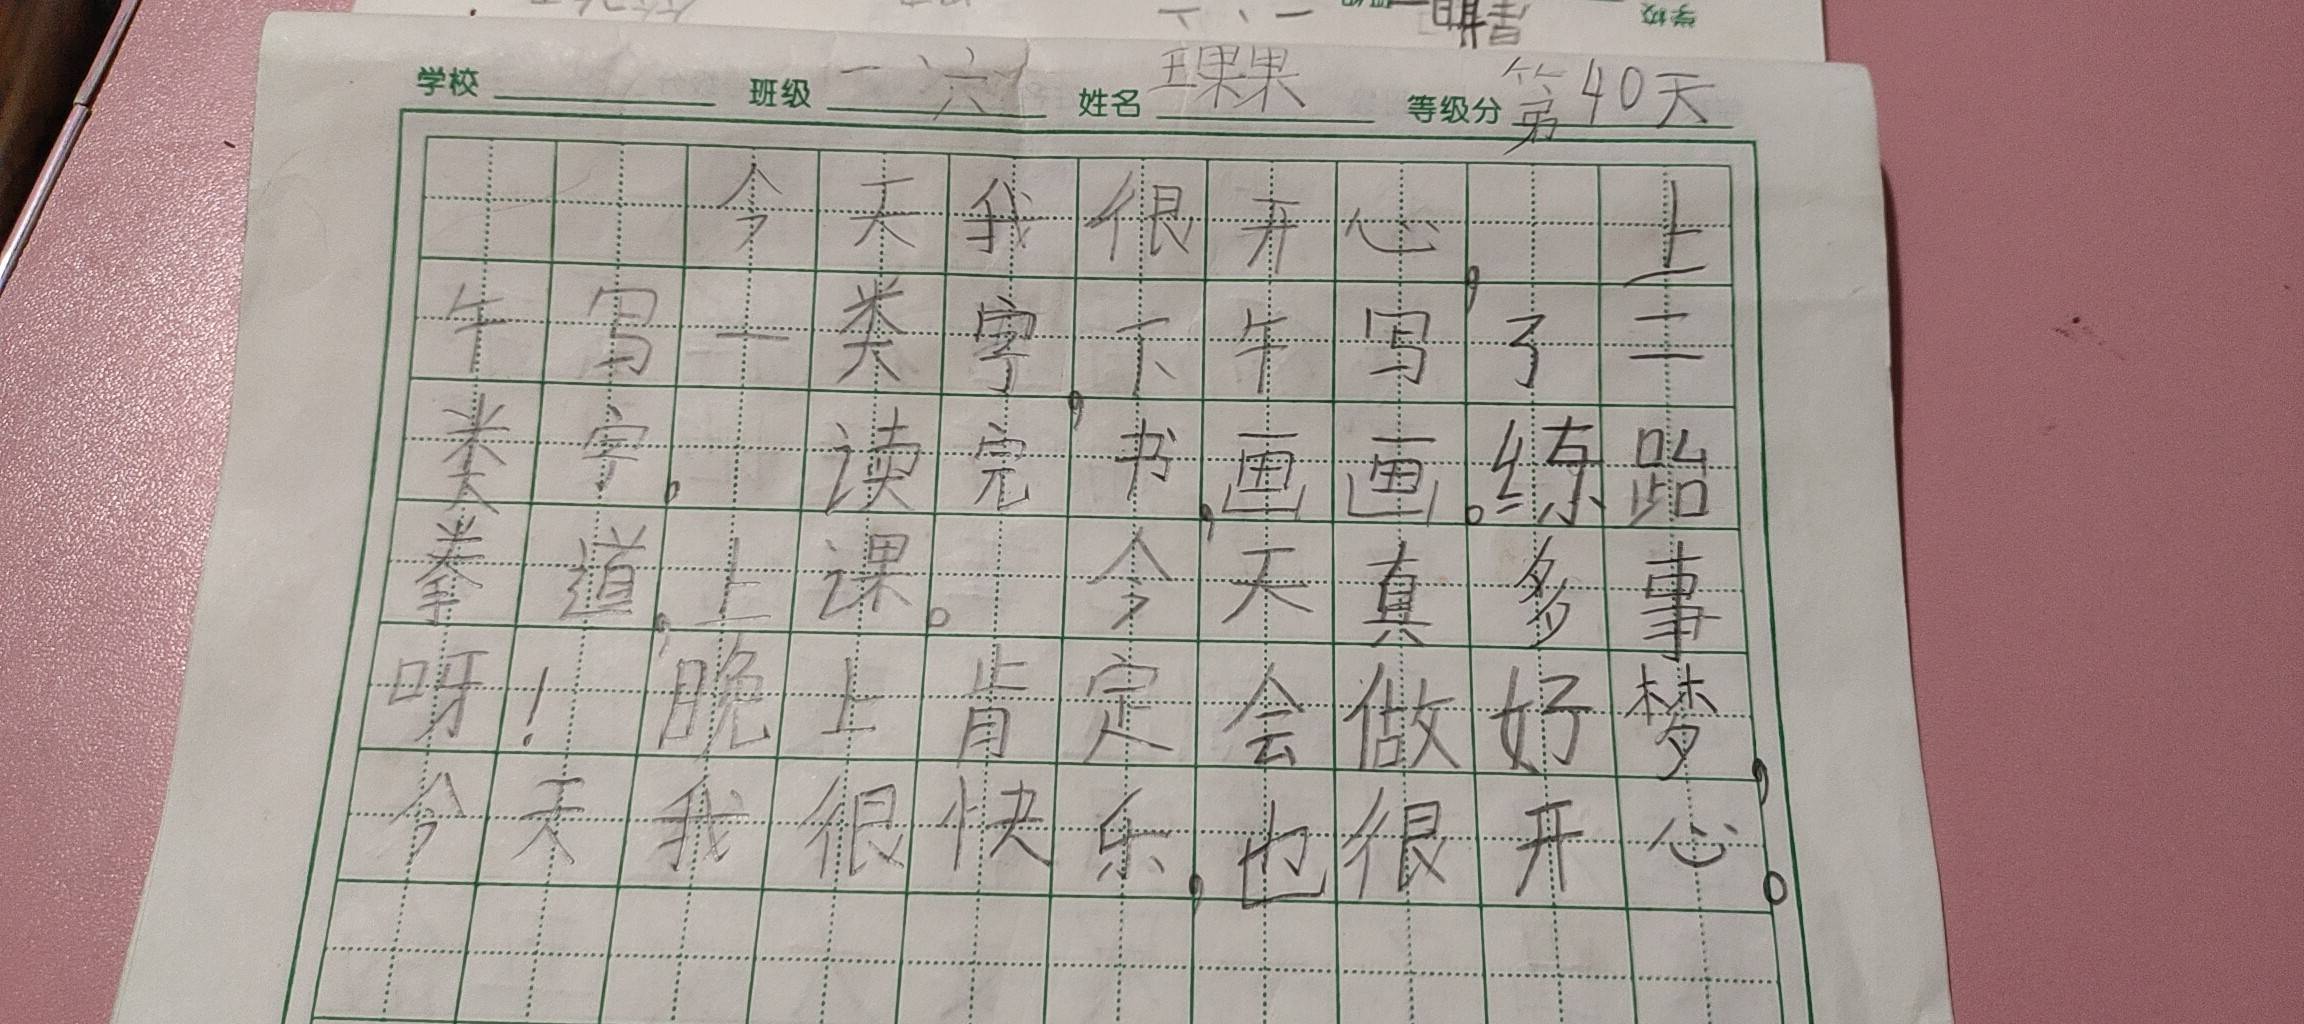 学校 班级 一、六 姓名 王果果 等级分 第40天
今天我很开心,上
午写一类字,下午写了二
类字。读完书,画画。练跆
拳道,上课。今天真多事
呀!晚上肯定会做好梦,
今天我很快乐,也很开心。